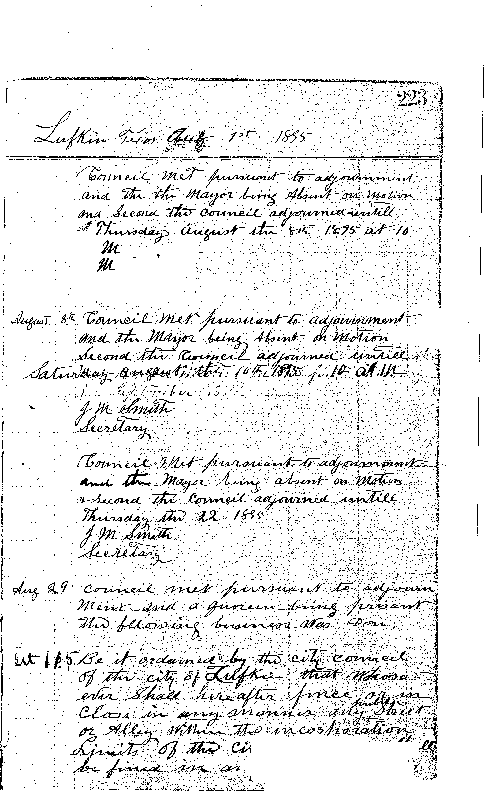 223
Lufkin Texas Aug 1st 1895
Council met pursuant to adjournment
and the the Mayor being Absent on Motion
and Second the council adjourned untill
Thursday August the 8th 1895 at 10
M
M
August 8th Council met pursuant to adjournment
and the Mayor being Absent on Motion
Second the Council adjourned untill
Saturday August the 10th 1895 10 at M
J M Smith
Secretary
Council Met pursuant to adjournment
and the Mayor being absent on Motion
& second the council adjourned untill
Thursday the 22 1895
J M Smith
Secretary
Aug 29 council met pursuant to adjourn
ment and a quorum being present
the following business was don
Be it ordained by the city council
of the city of Lufkin that whoso
ever shall hereafter fence or in
Close in any manner any public Street
or Alley within the incorporation
Limits of the Ci
be fined in a